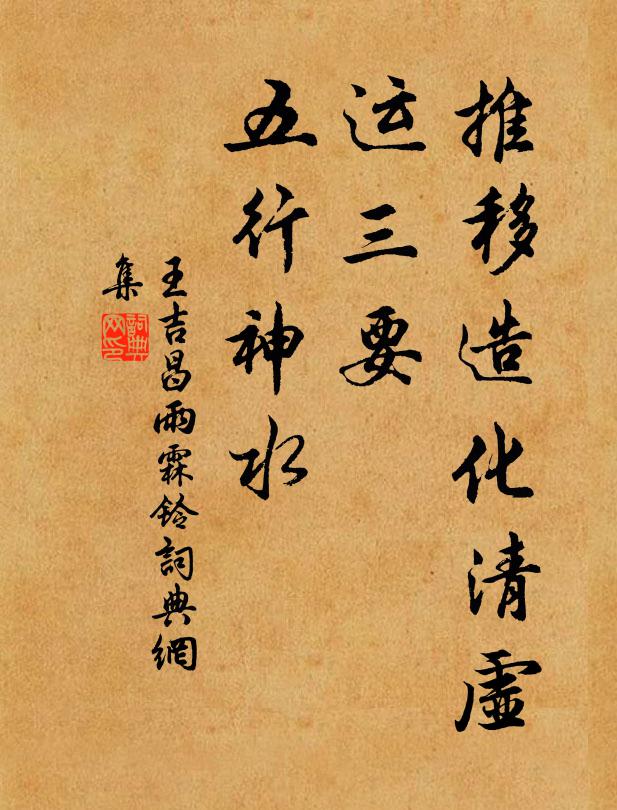 推移造化清虛
运三要
五行神水
王吉昌雨霖鈴詞典網
集
詞典
网印